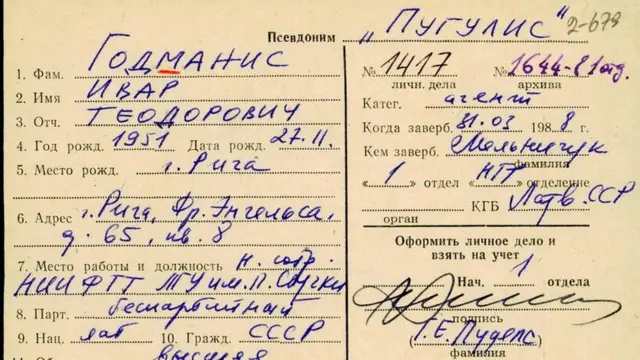 Псевдоним „ПУГУЛИС" 2-678
1. Фам. ГОДМАНИС
2. Имя ИВАР
3. Отч. ТЕОДОРОВИЧ
4. Год рожд. 1951 Дата рожд. 27.11.
5. Место рожд. г. Рига
6. Адрес г. Рига, Фр. Энгельса,
д. 65, кв. 8
7. Место работы и должность н. сотр.
НИИ ФТТ ЛГУ им. П. Стучки
8. Парт. беспартийный
9. Нац. лат 10. Гражд. СССР
высшее
№ 1417 № 1644-81отд.
личн. дела архива
Катег. агент
Когда заверб. 31.03 1988 г.
Кем заверб. Мельничук
фамилия
«1» отдел «НТР» отделение
КГБ Латв. ССР
орган
Оформить личное дело и
взять на учет
Нач. 1 отдела
подпись
(Г.Е. Пуделс)
фамилия